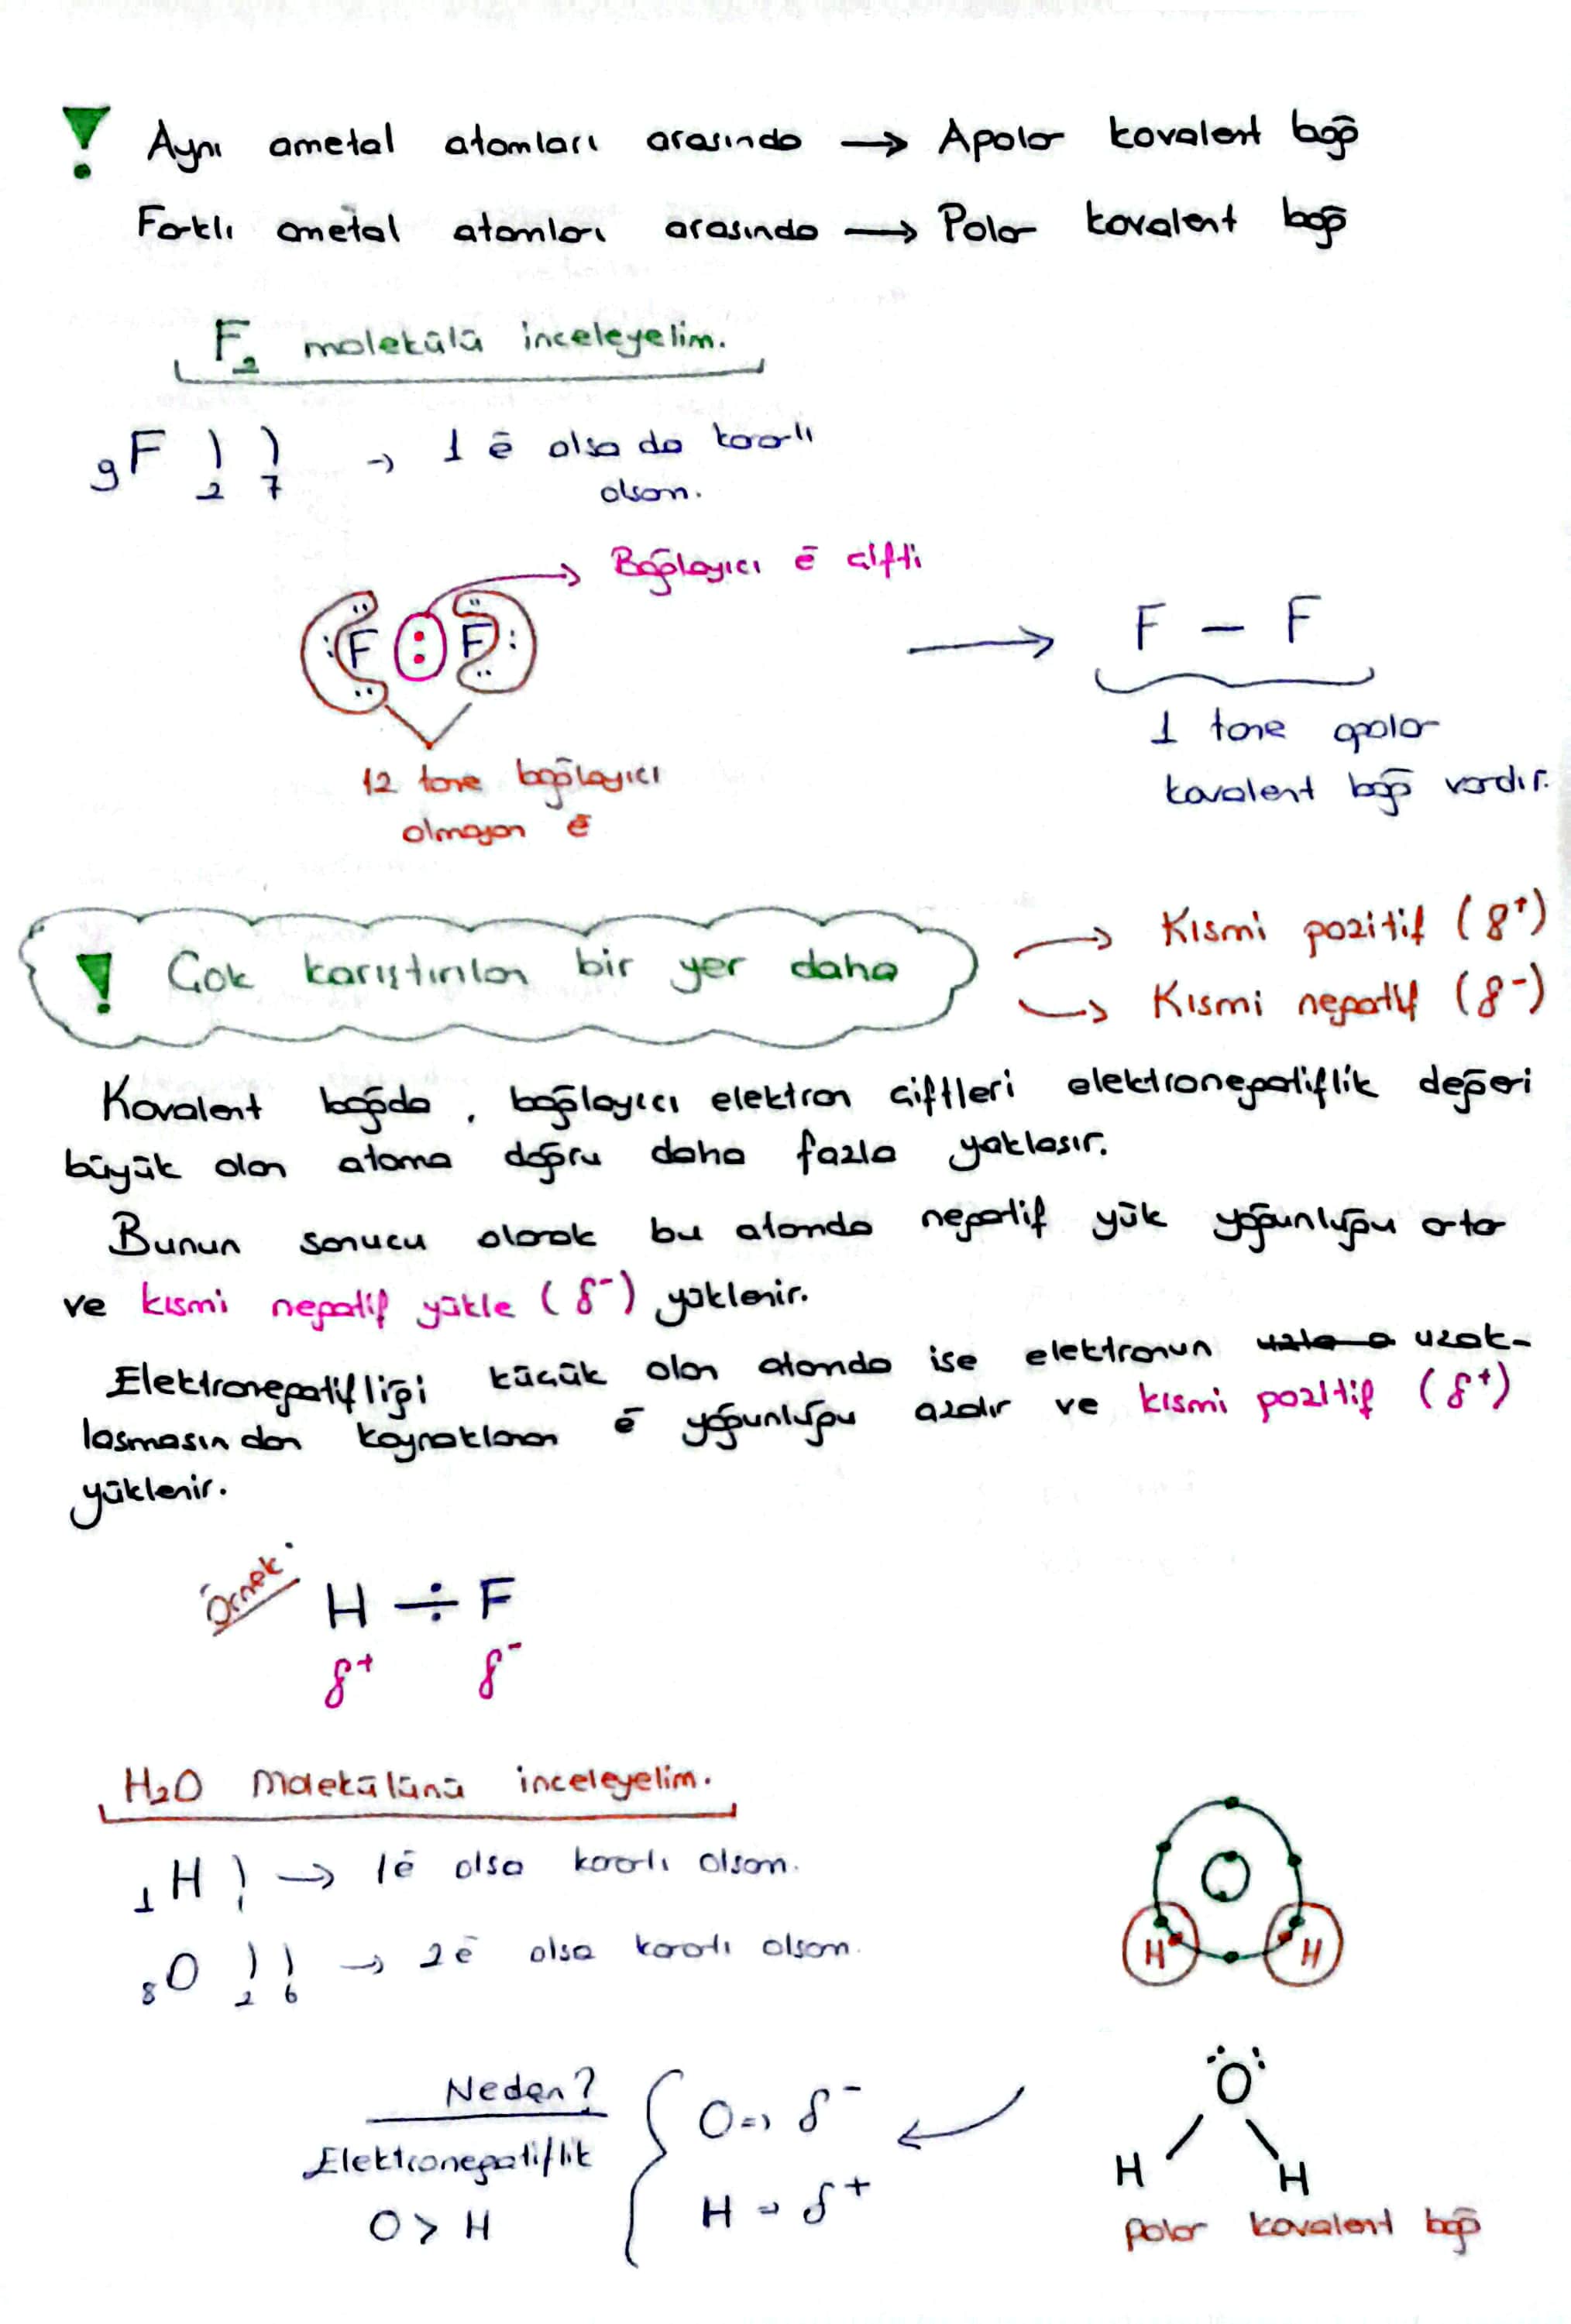 ! Aynı ametal atomları arasında → Apolar kovalent bağ
Farklı ametal atomları arasında → Polar kovalent bağ
F₂ molekülü inceleyelim.
₉F ) ) → 1 ē alsa da kararlı
2 7
olsam.
Bağlayıcı ē çifti
:F : F:
F - F
1 tane apolar
kovalent bağ vardır.
12 tane bağlayıcı
olmayan ē
! Çok karıştırılan bir yer daha
→ Kısmi pozitif (δ⁺)
→ Kısmi negatif (δ⁻)
Kovalent bağda, bağlayıcı elektron çiftleri elektronegatiflik değeri
büyük olan atoma doğru daha fazla yaklasır.
Bunun sonucu olarak bu atomda negatif yük yoğunluğu artar
ve kısmi negatif yükle (δ⁻) yüklenir.
Elektronegatifliği küçük olan atomda ise elektronun uzak-
lasmasından kaynaklanan ē yoğunluğu azdır ve kısmi pozitif (δ⁺)
yüklenir.
Örnek:
H ÷ F
δ⁺ δ⁻
H₂O Molekülünü inceleyelim.
₁H ) → 1ē alsa kararlı olsam.
1
₈O ) ) → 2ē alsa kararlı olsam.
2 6
O
H H
Neden?
Elektronegatiflik
O > H
O ⇒ δ⁻
H ⇒ δ⁺
O
H H
polar kovalent bağ